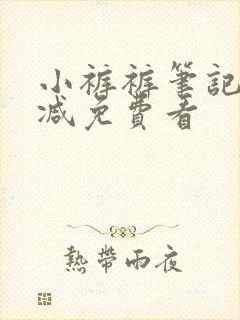 小裤裤筆記
减免費看
熱帶雨夜